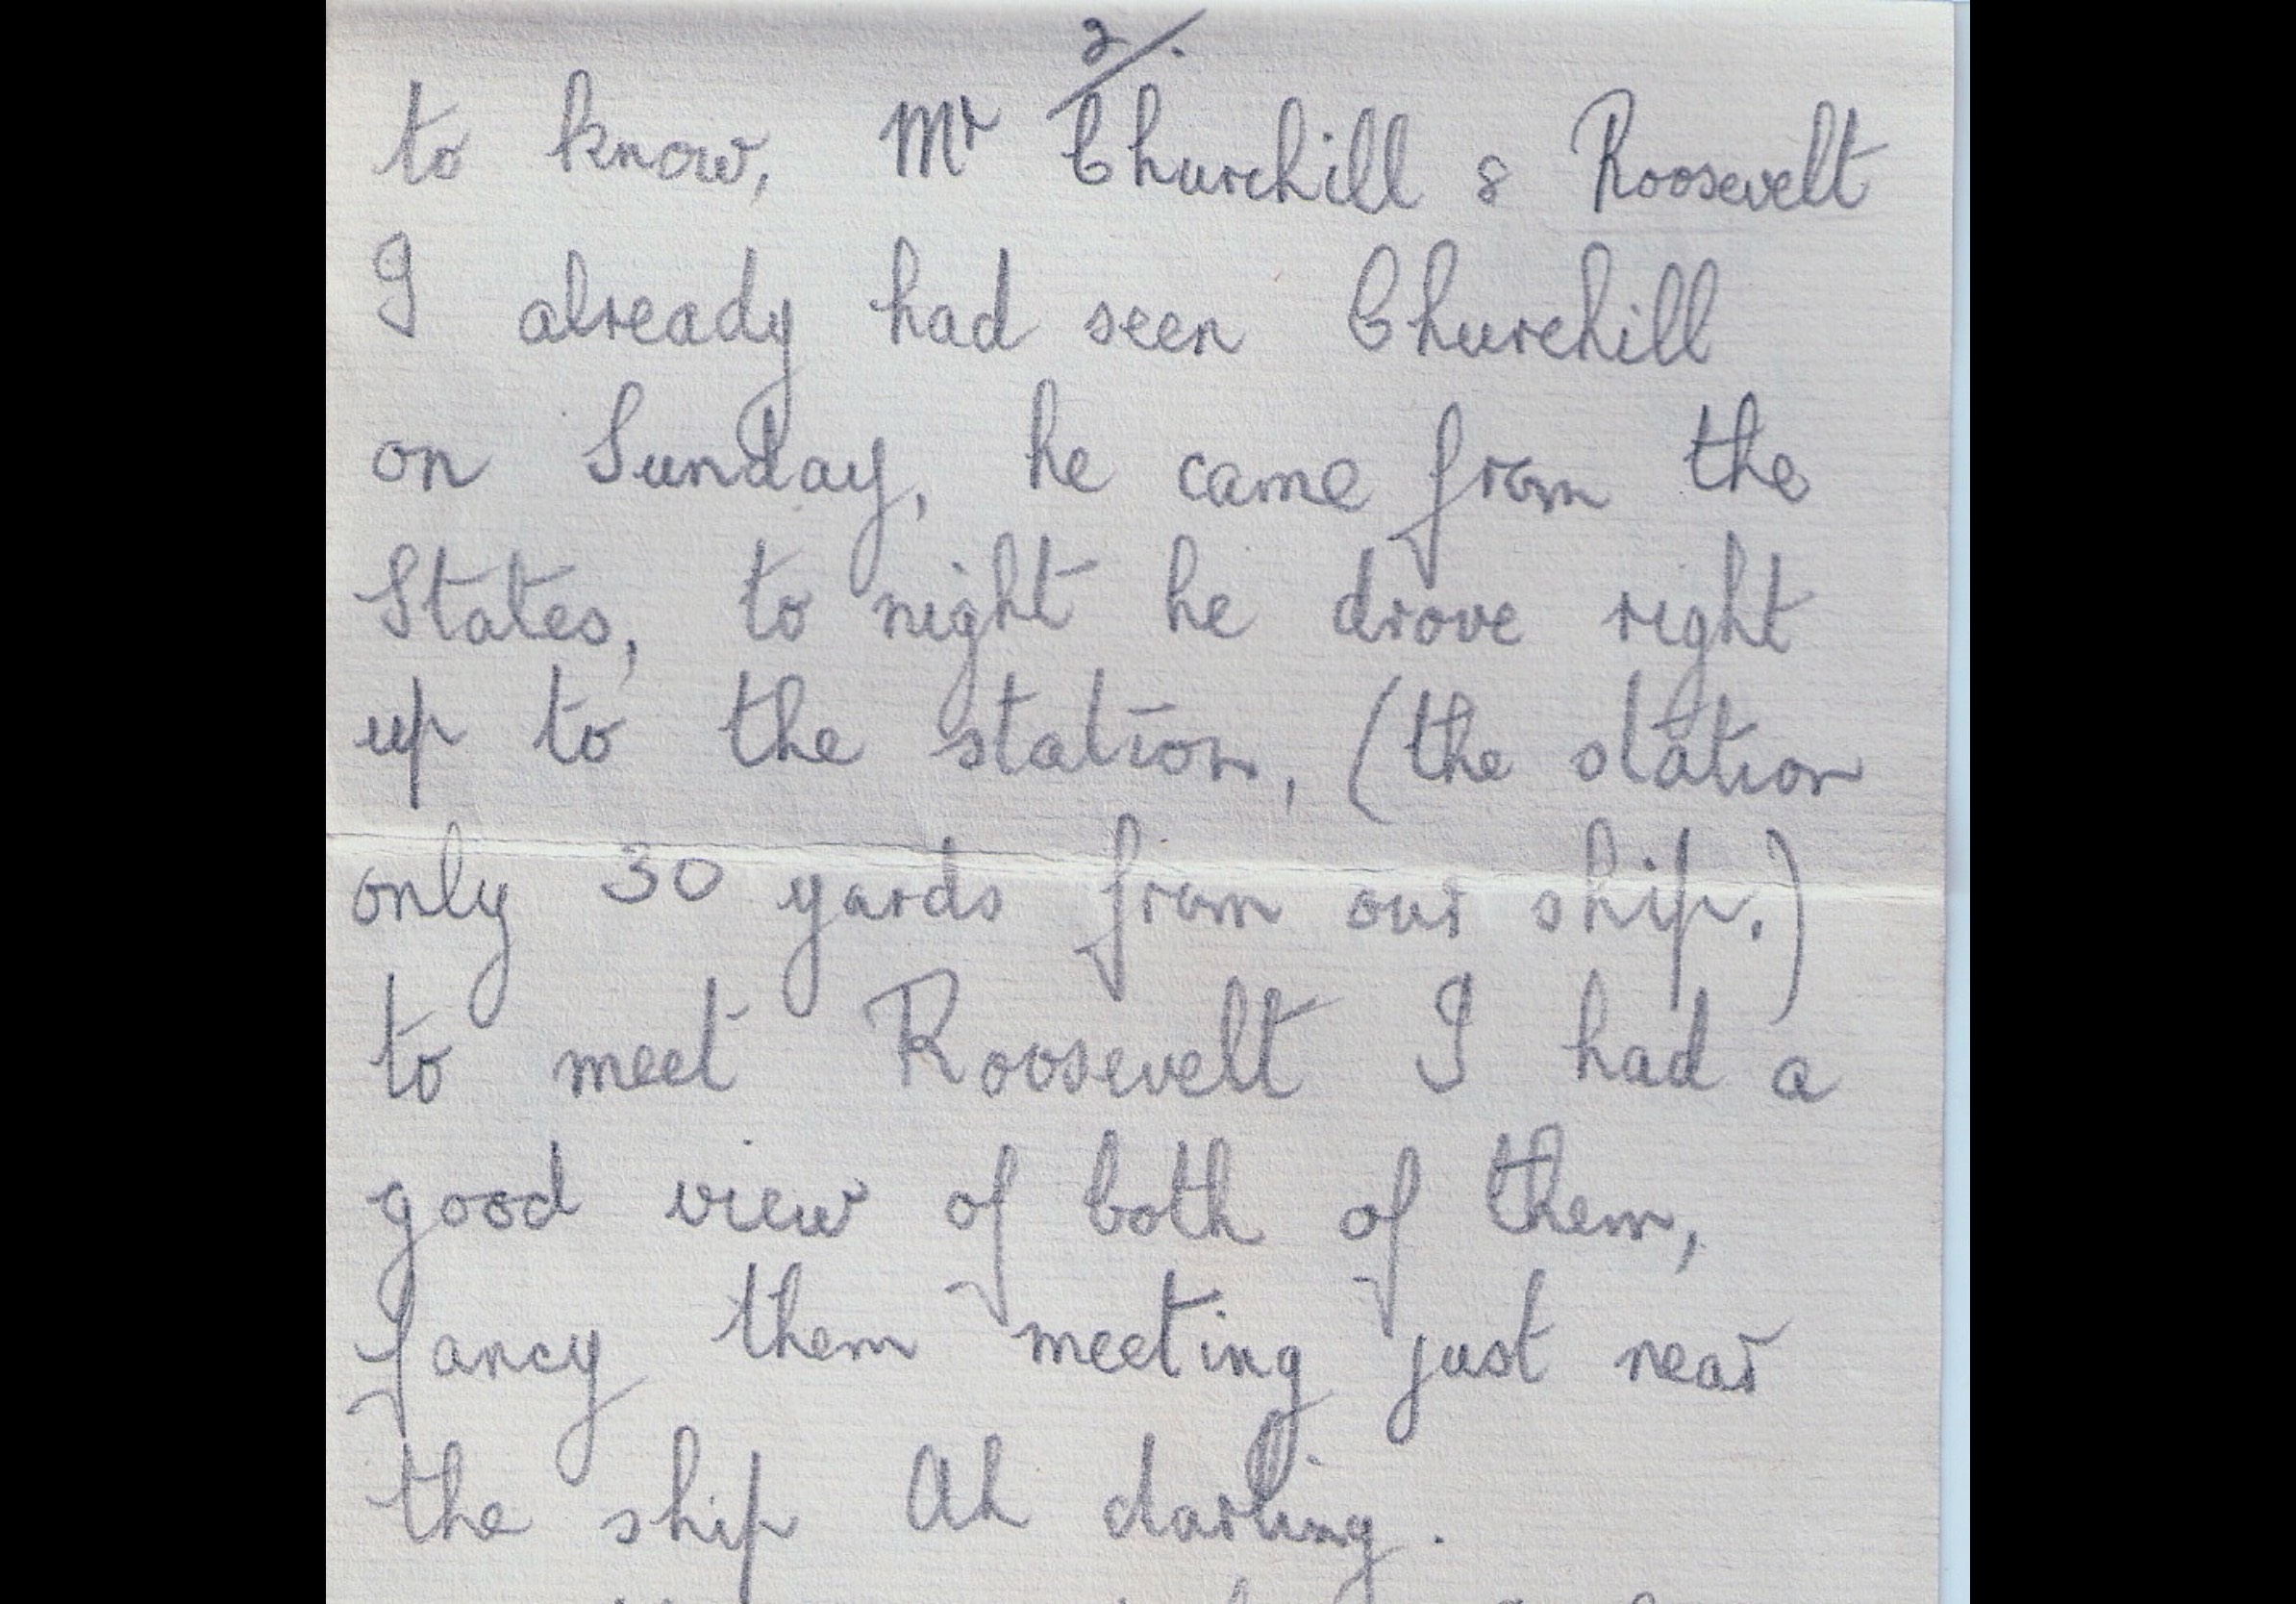 2/.
to know, Mr Churchill & Roosevelt
I already had seen Churchill
on Sunday, he came from the
States, to night he drove right
up to the station, (the station
only 30 yards from our ship.)
to meet Roosevelt I had a
good view of both of them,
fancy them meeting just near
the ship Ah darling.